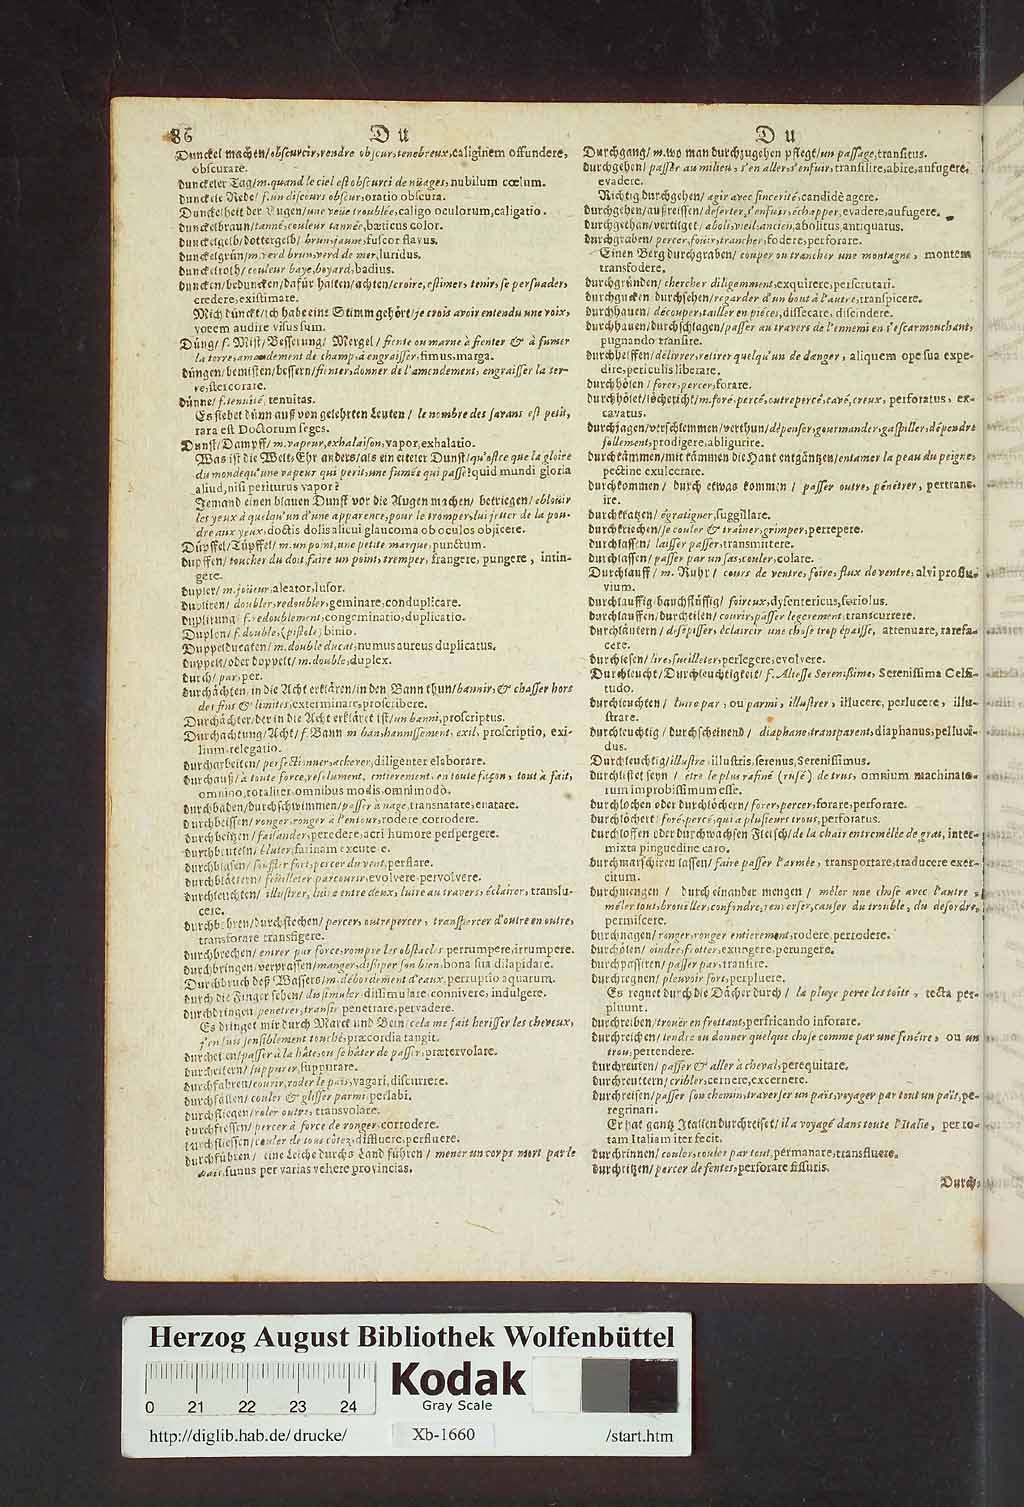 86
Du
Dunckel machen/obscurcir, rendre obscur, tenebreux, caliginem offundere,
obscurare.
dunckeler Tag/m. quand le ciel est obscurci de nüages, nubilum cœlum.
dunckele Rede/f. un discours obscur, oratio obscura.
Dunckelheit der Augen/une veüe troublée, caligo oculorum, caligatio.
dunckelbraun/tanné, couleur tannée, bæticus color.
dunckelgelb/dottergelb/brun, jaune, fuscor flavus.
dunckelgrün/m. verd brun, verd de mer, luridus.
dunckelroth/couleur baye, boyard, badius.
duncken/beduncken/dafür halten/achten/croire, estimer, tenir, se persuader,
credere, existimare.
Mich dünckt/ich habe eine Stimm gehört/je crois avoir entendu une voix,
vocem audire visus sum.
Düng/f. Mist/Besserung/Mergel/fiente ou marne à fienter & à fumer
la terre, amandement de champ, à engraisser, fimus, marga.
düngen/bemisten/bessern/fienter, donner de l'amendement, engraisser la ter-
re, stercorare.
dünne/f. tenuité, tenuitas.
Es siehet dünn auß von gelehrten Leuten/le nombre des savans est petit,
rara est Doctorum seges.
Dunst/Dampff/m. vapeur, exhalaison, vapor, exhalatio.
Was ist die Welt-Ehr anders/als ein eiteler Dunst/qu'est ce que la gloire
du monde qu'une vapeur qui perit, une fumée qui passe? quid mundi gloria
aliud, nisi periturus vapor?
Jemand einen blauen Dunst vor die Augen machen/betriegen/eblouir
les yeux à quelqu'un d'une apparence, pour le tromper, lui jetter de la pou-
dre aux yeux, doctis dolis alicui glaucoma ob oculos objicere.
Düpffel/Tüpffel/m. un point, une petite marque, punctum.
dupffen/toucher du doit faire un point, tremper, frangere, pungere, intin-
gere.
dupler/m. joüeur, aleator, lusor.
dupliren/doubler, redoubler, geminare, conduplicare.
duplirung f. redoublement, congeminatio, duplicatio.
Duplon/f. double, (pistole) binio.
Duppelducaten/m. double ducat, numus aureus duplicatus.
duppelt/oder doppelt/m. double, duplex.
durch/par, per.
durchächten, in die Acht erklären/in den Bann thun/bannir, & chasser hors
des fins & limites, exterminare, proscribere.
Durchächter/der in die Acht erkläret ist/un banni, proscriptus.
Durchächtung/Acht/f. Bann m ban, bannissement, exil, proscriptio, exi-
lium, relegatio.
durcharbeiten/perfectionner, achever, diligenter elaborare.
durchauß/à toute force, resolument, entierement, en toute façon, tout à fait,
omnino, totaliter, omnibus modis, omnimodò.
durchbaden/durchschwimmen/passer à nage, transnatare, enatare.
durchbeissen/ronger, ronger à l'entour, rodere corrodere.
durchbeitzen/faisander, peredere, acri humore perspergere.
durchbeuteln/bluter, farinam excutere.
durchblasen/souffler fort, percer du vent, perflare.
durchblättern/feüilleter parcourir, evolvere, pervolvere.
durchleuchten/illustrer, luire entre deux, luire au travers, éclairer, translu-
cere.
durchbohren/durchstechen/percer, outrepercer, transpercer d'outre en outre,
transforare transfigere.
durchbrechen/entrer par force, rompre les obstacles perrumpere, irrumpere.
durchbringen/verprassen/manger, dissiper son bien, bona sua dilapidare.
Durchbruch deß Wassers/m. débordement d'eaux, perruptio aquarum.
durch die Finger sehen/dissimuler dissimulare, connivere, indulgere.
durchdringen/penetrer, transir penetrare, pervadere.
Es dringet mir durch Marck und Bein/cela me fait herisser les cheveux,
j'en suis sensiblement touché, præcordia tangit.
passer à la hâte, ou se hâter de passer, prætervolare.
durcheitern/suppurer, suppurare.
durchfahren/courir, roder le païs, vagari, discurrere.
durchfallen/couler & glisser parmi, perlabi.
durchfliegen/voler outre, transvolare.
durchfressen/percer à force de ronger, corrodere.
durchfliessen/couler de tous côtez, diffluere, perfluere.
durchführen/eine Leiche durchs Land führen/mener un corps mort par le
païs, funus per varias vehere provincias.
Du
Durchgang/m. wo man durchzugehen pflegt/un passage, transitus.
durchgehen/passer au milieu, s'en aller, s'enfuir, transilire, abire, aufugere,
evadere.
Richtig durchgehen/agir avec sincerité, candidè agere.
durchgehen/außreissen/deserter, s'enfuir, échapper, evadere, aufugere.
durchgethan/vertilget/aboli, vieil, ancien, abolitus, antiquatus.
durchgraben/percer, foüir, trancher, fodere, perforare.
Einen Berg durchgraben/couper ou trancher une montagne, montem
transfodere.
durchgründen/chercher diligemment, exquirere, perscrutari.
durchgucken durchsehen/regarder d'un bout à l'autre, transpicere.
durchhauen/découper, tailler en piéces, dissecare, discindere.
durchhauen/durchschlagen/passer au travers de l'ennemi en s'escarmouchant,
pugnando transire.
durchhelffen/délivrer, retirer quelqu'un de danger, aliquem ope sua expe-
dire, periculis liberare.
durchhölen/forer, percer, forare.
durchhölet/löchericht/m. foré, percé, outrepercé, cavé, creux, perforatus, ex-
cavatus.
durchjagen/verschlemmen/verthun/dépenser, gourmander, gaspiller, dépendre
follement, prodigere, abligurire.
durchkämmen/mit kämmen die Haut entgäntzen/entamer la peau du peigne,
pectine exulcerare.
durchkommen/durch etwas kommen/passer outre, pénétrer, pertrans-
ire.
durchkratzen/égratigner, suggillare.
durchkriechen/se couler & traîner, grimper, perrepere.
durchlassen/laisser passer, transmittere.
durchlassen/passer par un sas, couler, colare.
Durchlauff/m. Ruhr/cours de ventre, foire, flux de ventre, alvi proflu-
vium.
durchlauffig/bauchflüssig/foireux, dysentericus, foriolus.
durchlauffen/durcheilen/courir, passer legerement, transcurrere.
durchläutern/desépisser, éclaircir une chose trop épaisse, attenuare, rarefa-
cere.
durchlesen/lire, fueilleter, perlegere, evolvere.
Durchleucht/Durchleuchtigkeit/f. Altesse Serenissime, Serenissima Celsi-
tudo.
durchleuchten/luire par, ou parmi, illustrer, illucere, perlucere, illu-
strare.
durchleuchtig/durchscheinend/diaphane, transparent, diaphanus, pelluci-
dus.
Durchleuchtig/illustre, illustris, serenus, Serenissimus.
durchlistet seyn/estre le plus rafiné (rusé) de tous, omnium machinato-
rum improbissimum esse.
durchlochen oder durchlöchern/forer, percer, forare, perforare.
durchlöchert/foré, percé, qui a plusieurs trous, perforatus.
durchloffen oder durchwachsen Fleisch/de la chair entremêlée de gras, inter-
mixta pinguedine caro.
durchmarschiren lassen/faire passer l'armée, transportare, traducere exer-
citum.
durchmengen/durch einander mengen/mêler une chose avec l'autre,
mêler tout, brouiller, confondre, renverser, causer du trouble, du desordre,
permiscere.
durchnagen/ronger, ronger entierement, rodere, perrodere.
durchölen/oindre, frotter, exungere, perungere.
durchpassiren/passer par, transire.
durchregnen/pleuvoir fort, perpluere.
Es regnet durch die Dächer durch/la pluye perce les toits, tecta per-
pluunt.
durchreiben/trouër en frottant, perfricando inforare.
durchreichen/tendre ou donner quelque chose comme par une fenêtre, ou un
trou, pertendere.
durchreuten/passer & aller à cheval, perequitare.
durchreuttern/cribler, cernere, excernere.
durchreisen/passer son chemin, traverser un païs, voyager par tout un païs, pe-
regrinari.
Er hat gantz Italien durchreiset/il a voyagé dans toute l'Italie, per to-
tam Italiam iter fecit.
durchrinnen/couler, couler par tout, permanare, transfluere.
durchritzen/percer de fentes, perforare fissuris.
Durch-
Herzog August Bibliothek Wolfenbüttel
Kodak
Gray Scale
0 21 22 23 24
http://diglib.hab.de/drucke/ Xb-1660 /start.htm